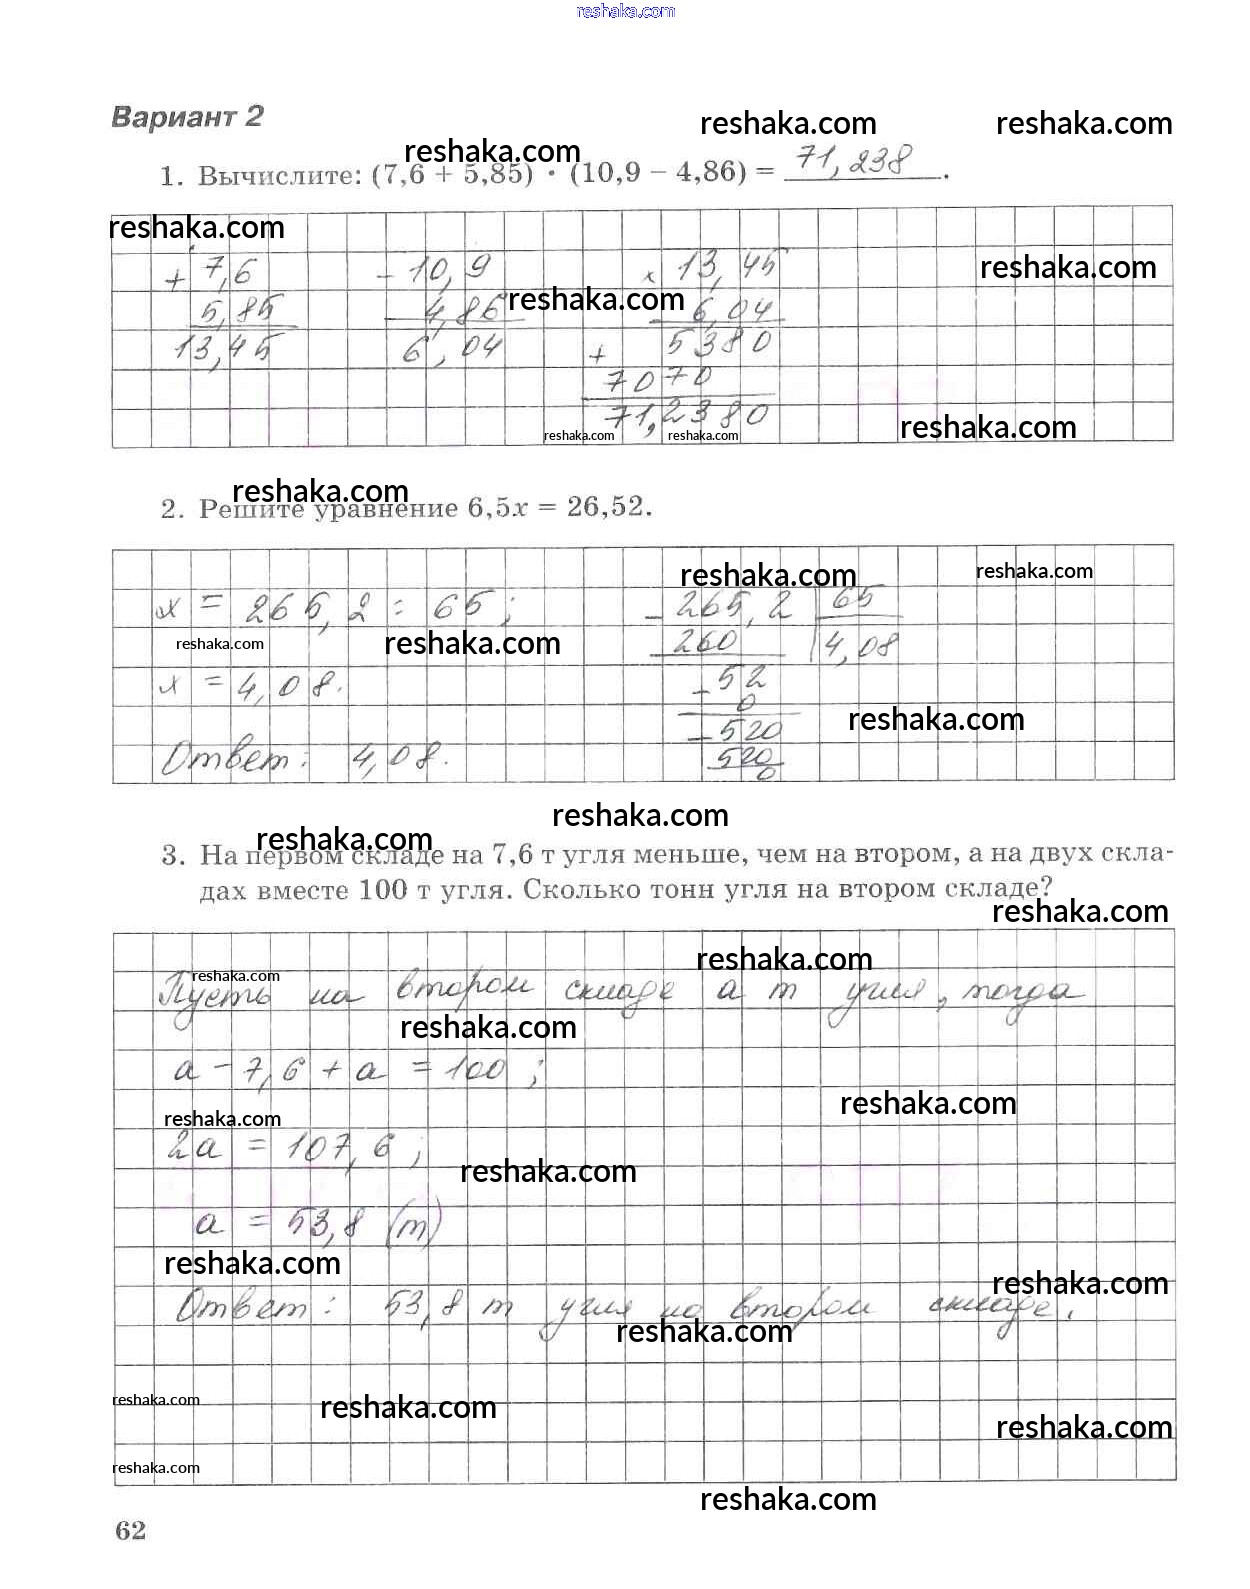 reshaka.com
Вариант 2
reshaka.com reshaka.com
reshaka.com
1. Вычислите: (7,6 + 5,85) · (10,9 – 4,86) = 71,238.
reshaka.com
+ 7,6 – 10,9 × 13,45 reshaka.com
5,85 4,86 reshaka.com 6,04
13,45 6,04 + 5380
7070
71,2380
reshaka.com reshaka.com reshaka.com
reshaka.com
2. Решите уравнение 6,5x = 26,52.
reshaka.com reshaka.com
x = 265,2 : 65; – 265,2 65
reshaka.com reshaka.com 260 4,08
x = 4,08. – 52
0
reshaka.com
– 520
Ответ: 4,08. 520
0
reshaka.com
reshaka.com
3. На первом складе на 7,6 т угля меньше, чем на втором, а на двух скла-
дах вместе 100 т угля. Сколько тонн угля на втором складе?
reshaka.com
reshaka.com reshaka.com
Пусть на втором складе а т угля, тогда
reshaka.com
а – 7,6 + а = 100;
reshaka.com
reshaka.com
2а = 107,6;
reshaka.com
а = 53,8 (т)
reshaka.com
reshaka.com
Ответ: 53,8 т угля на втором складе.
reshaka.com
reshaka.com reshaka.com
reshaka.com
reshaka.com
reshaka.com
62